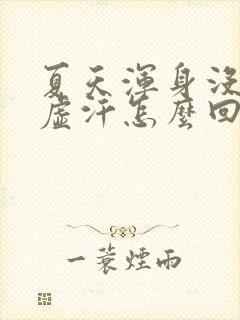 夏天渾身沒
虛汗怎麼回
一蓑煙雨